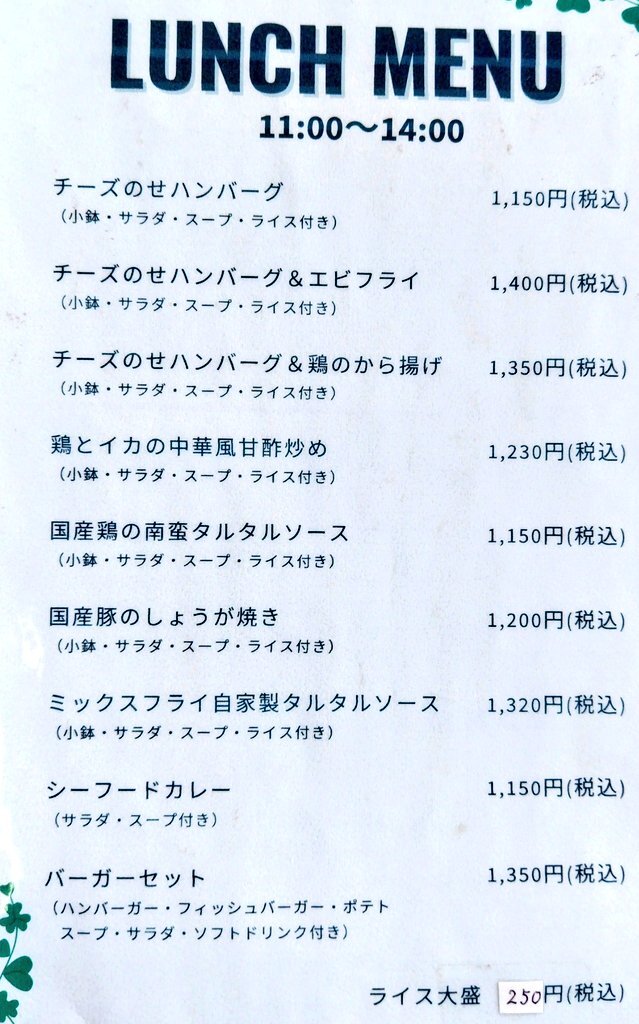 LUNCH MENU
11:00～14:00
チーズのせハンバーグ 1,150円(税込)
（小鉢・サラダ・スープ・ライス付き）
チーズのせハンバーグ＆エビフライ 1,400円(税込)
（小鉢・サラダ・スープ・ライス付き）
チーズのせハンバーグ＆鶏のから揚げ 1,350円(税込)
（小鉢・サラダ・スープ・ライス付き）
鶏とイカの中華風甘酢炒め 1,230円(税込)
（小鉢・サラダ・スープ・ライス付き）
国産鶏の南蛮タルタルソース 1,150円(税込)
（小鉢・サラダ・スープ・ライス付き）
国産豚のしょうが焼き 1,200円(税込)
（小鉢・サラダ・スープ・ライス付き）
ミックスフライ自家製タルタルソース 1,320円(税込)
（小鉢・サラダ・スープ・ライス付き）
シーフードカレー 1,150円(税込)
（サラダ・スープ付き）
バーガーセット 1,350円(税込)
（ハンバーガー・フィッシュバーガー・ポテト
スープ・サラダ・ソフトドリンク付き）
ライス大盛 250円(税込)